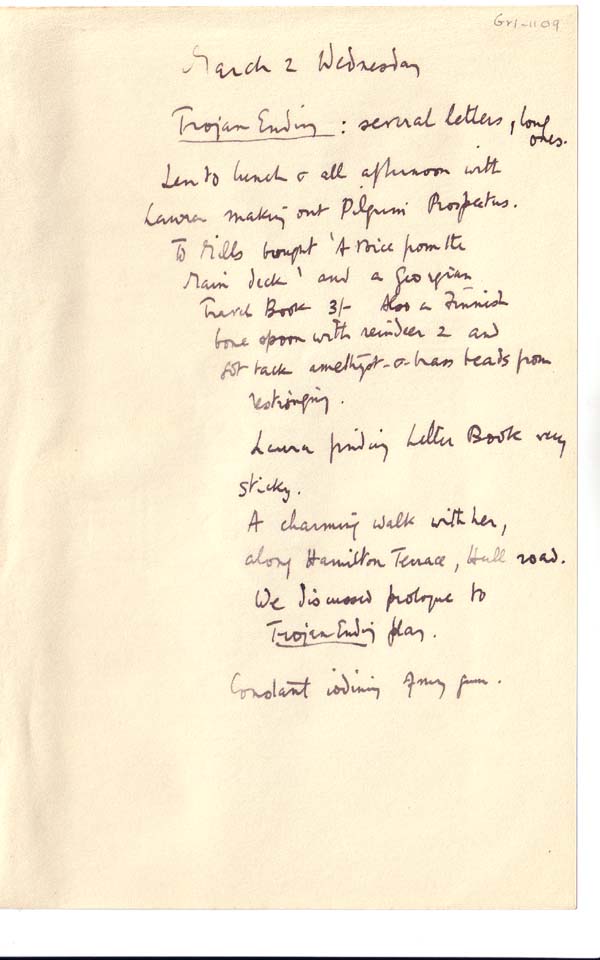 GRI-1109
March 2 Wednesday
Trojan Ending : several letters, long
ones.
Len to lunch & all afternoon with
Laura making out Pilgrim Prospectus.
To Mills bought 'A Voice from the
Main deck' and a Georgian
Travel Book 3/- Also a Finnish
bone spoon with reindeer 2 and
got back amethyst-&-brass beads from
restringing.
Laura finding Letter Book very
sticky.
A charming walk with her,
along Hamilton Terrace, Hall road.
We discussed prologue to
Trojan Ending play.
Constant iodining of my gum.